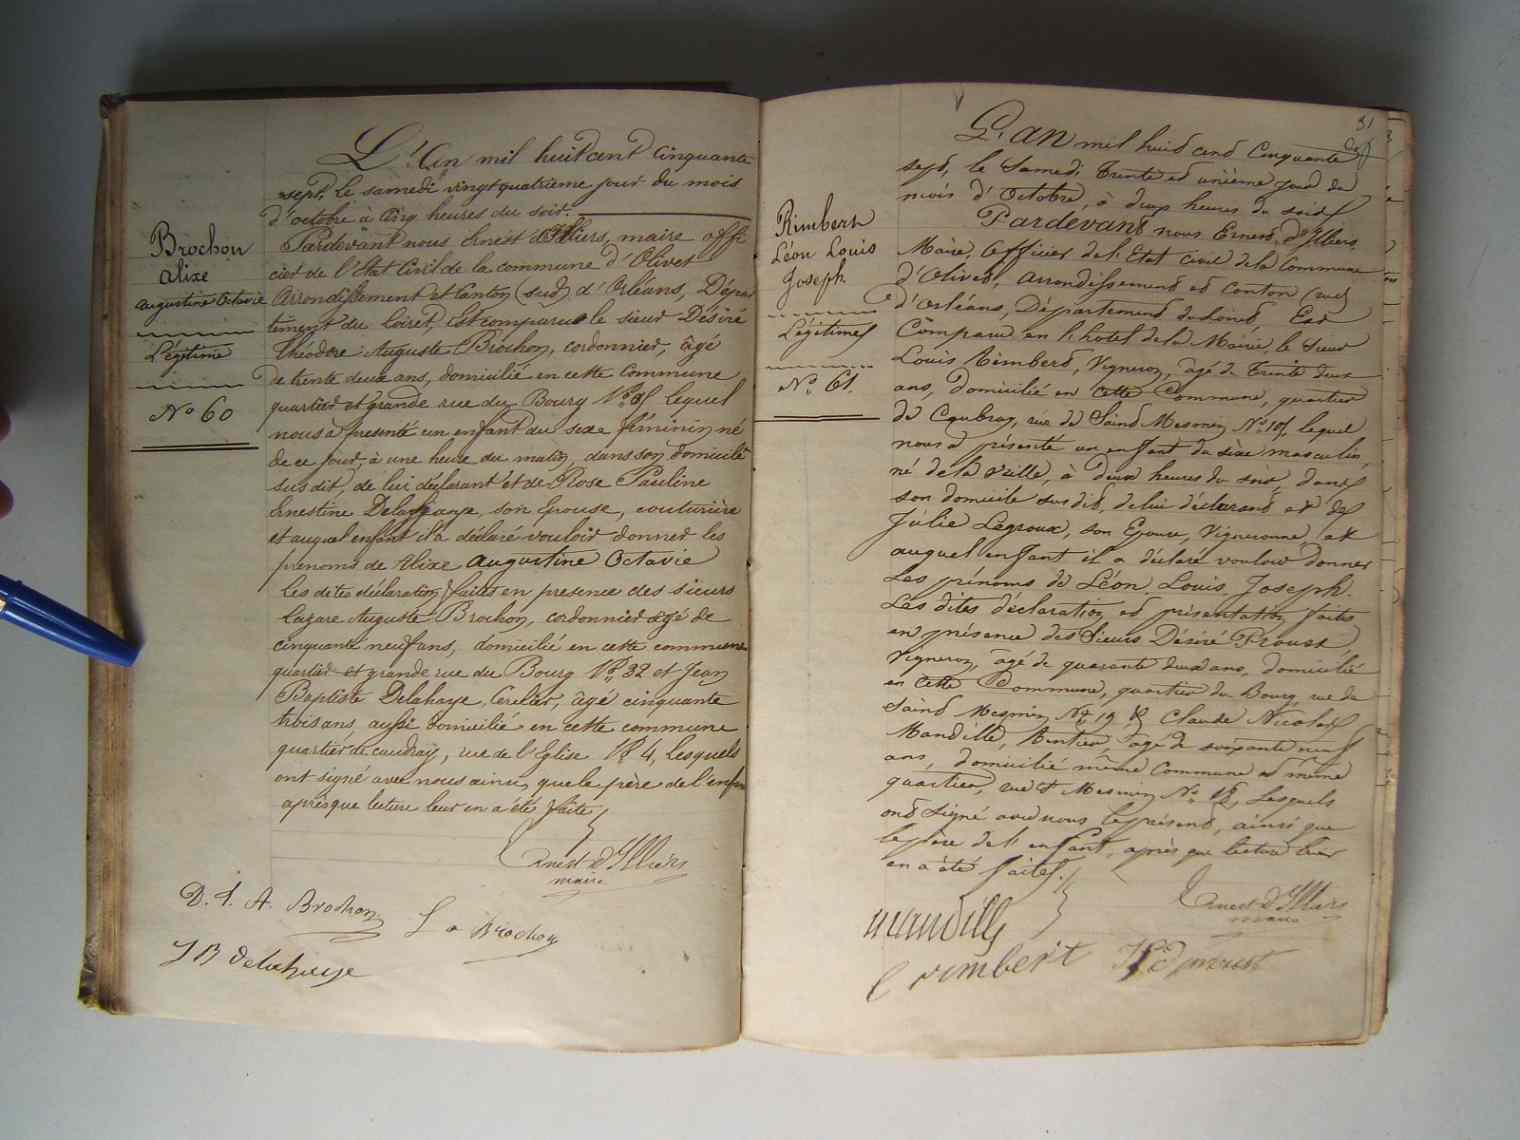 Brochon
alixe
augustine Octavie
Légitime
No 60
L'An mil huit cent cinquante
sept, le samedi vingt quatrième jour du mois
d'octobre à cinq heures du soir.
Pardevant nous Ernest d'Illiers, maire offi
cier de l'Etat Civil de la commune d'Olivet
Arrondissement et Canton (sud) d'Orléans, Dépar
tement du Loiret, Est comparu le sieur Désiré
Théodore Auguste Brochon, cordonnier, âgé
de trente deux ans, domicilié en cette commune
quartier et grande rue du Bourg No lequel
nous a présenté un enfant du sexe féminin né
de ce jour, à une heure du matin, dans son domicile
susdit, de lui déclarant et de Rose Pauline
Ernestine Delahaye, son épouse, couturière
et auquel enfant il a déclaré vouloir donner les
prenoms de Alixe Augustine Octavie
Les dites déclaration faites en presence des sieurs
Lazare Auguste Brochon, cordonnier agé de
cinquante neuf ans, domicilié en cette commune
quartier et grande rue du Bourg No 32 et Jean
Baptiste Delahaye, Cerclier, âgé cinquante
trois ans, aussi domicilié en cette commune
quartier de caudray, rue de l'Eglise No 4, Lesquels
ont signé avec nous ainsi que le père de l'enfan
après que lecture leur en a été faite
Ernest d'Illiers
maire
D. T. A. Brochon
L a Brochon
J B delahaye
31
Rimbert
Léon Louis
Joseph
Légitime
No 61.
L'an mil huit cent cinquante
sept, le Samedi trente et unième jour du
mois d'Octobre, à deux heures du soir
Pardevant nous Ernest d'Illiers
Maire, Officier de l'Etat civil de la Commune
d'Olivet, arrondissement et canton (sud)
d'Orléans, Département du Loiret Est
Comparu en l'hôtel de la Mairie, le sieur
Louis Rimbert, Vigneron, âgé de trente deux
ans, domicilié en cette Commune, quartier
de Caubray, rue de Saint Mesmin No 101, lequel
nous a présenté un enfant du sèxe masculin,
né de la veille, à deux heures du soir, dans
son domicile susdit, de lui déclarant et de
Julie Légroux, son Epouse, Vigneronne, et
auquel enfant il a déclaré vouloir donner
Les prénoms de Léon Louis Joseph.
Les dites déclaration et présentation faites
en présence des Sieurs Désiré Proust
Vigneron, âgé de quarante deux ans, domicilié
en cette Commune, quartier du Bourg, rue de
Saint Mesmin No 19 & Claude Nicolas
Mandille, Rentier, âgé de soixante neuf
ans, domicilié même Commune et même
quartier, rue St Mesmin No Lesquels
ont signé avec nous le présent, ainsi que
le père de l'enfant, après que lecture leur
en a été faite.
Ernest d'Illiers
maire
mandille
l rimbert
proust